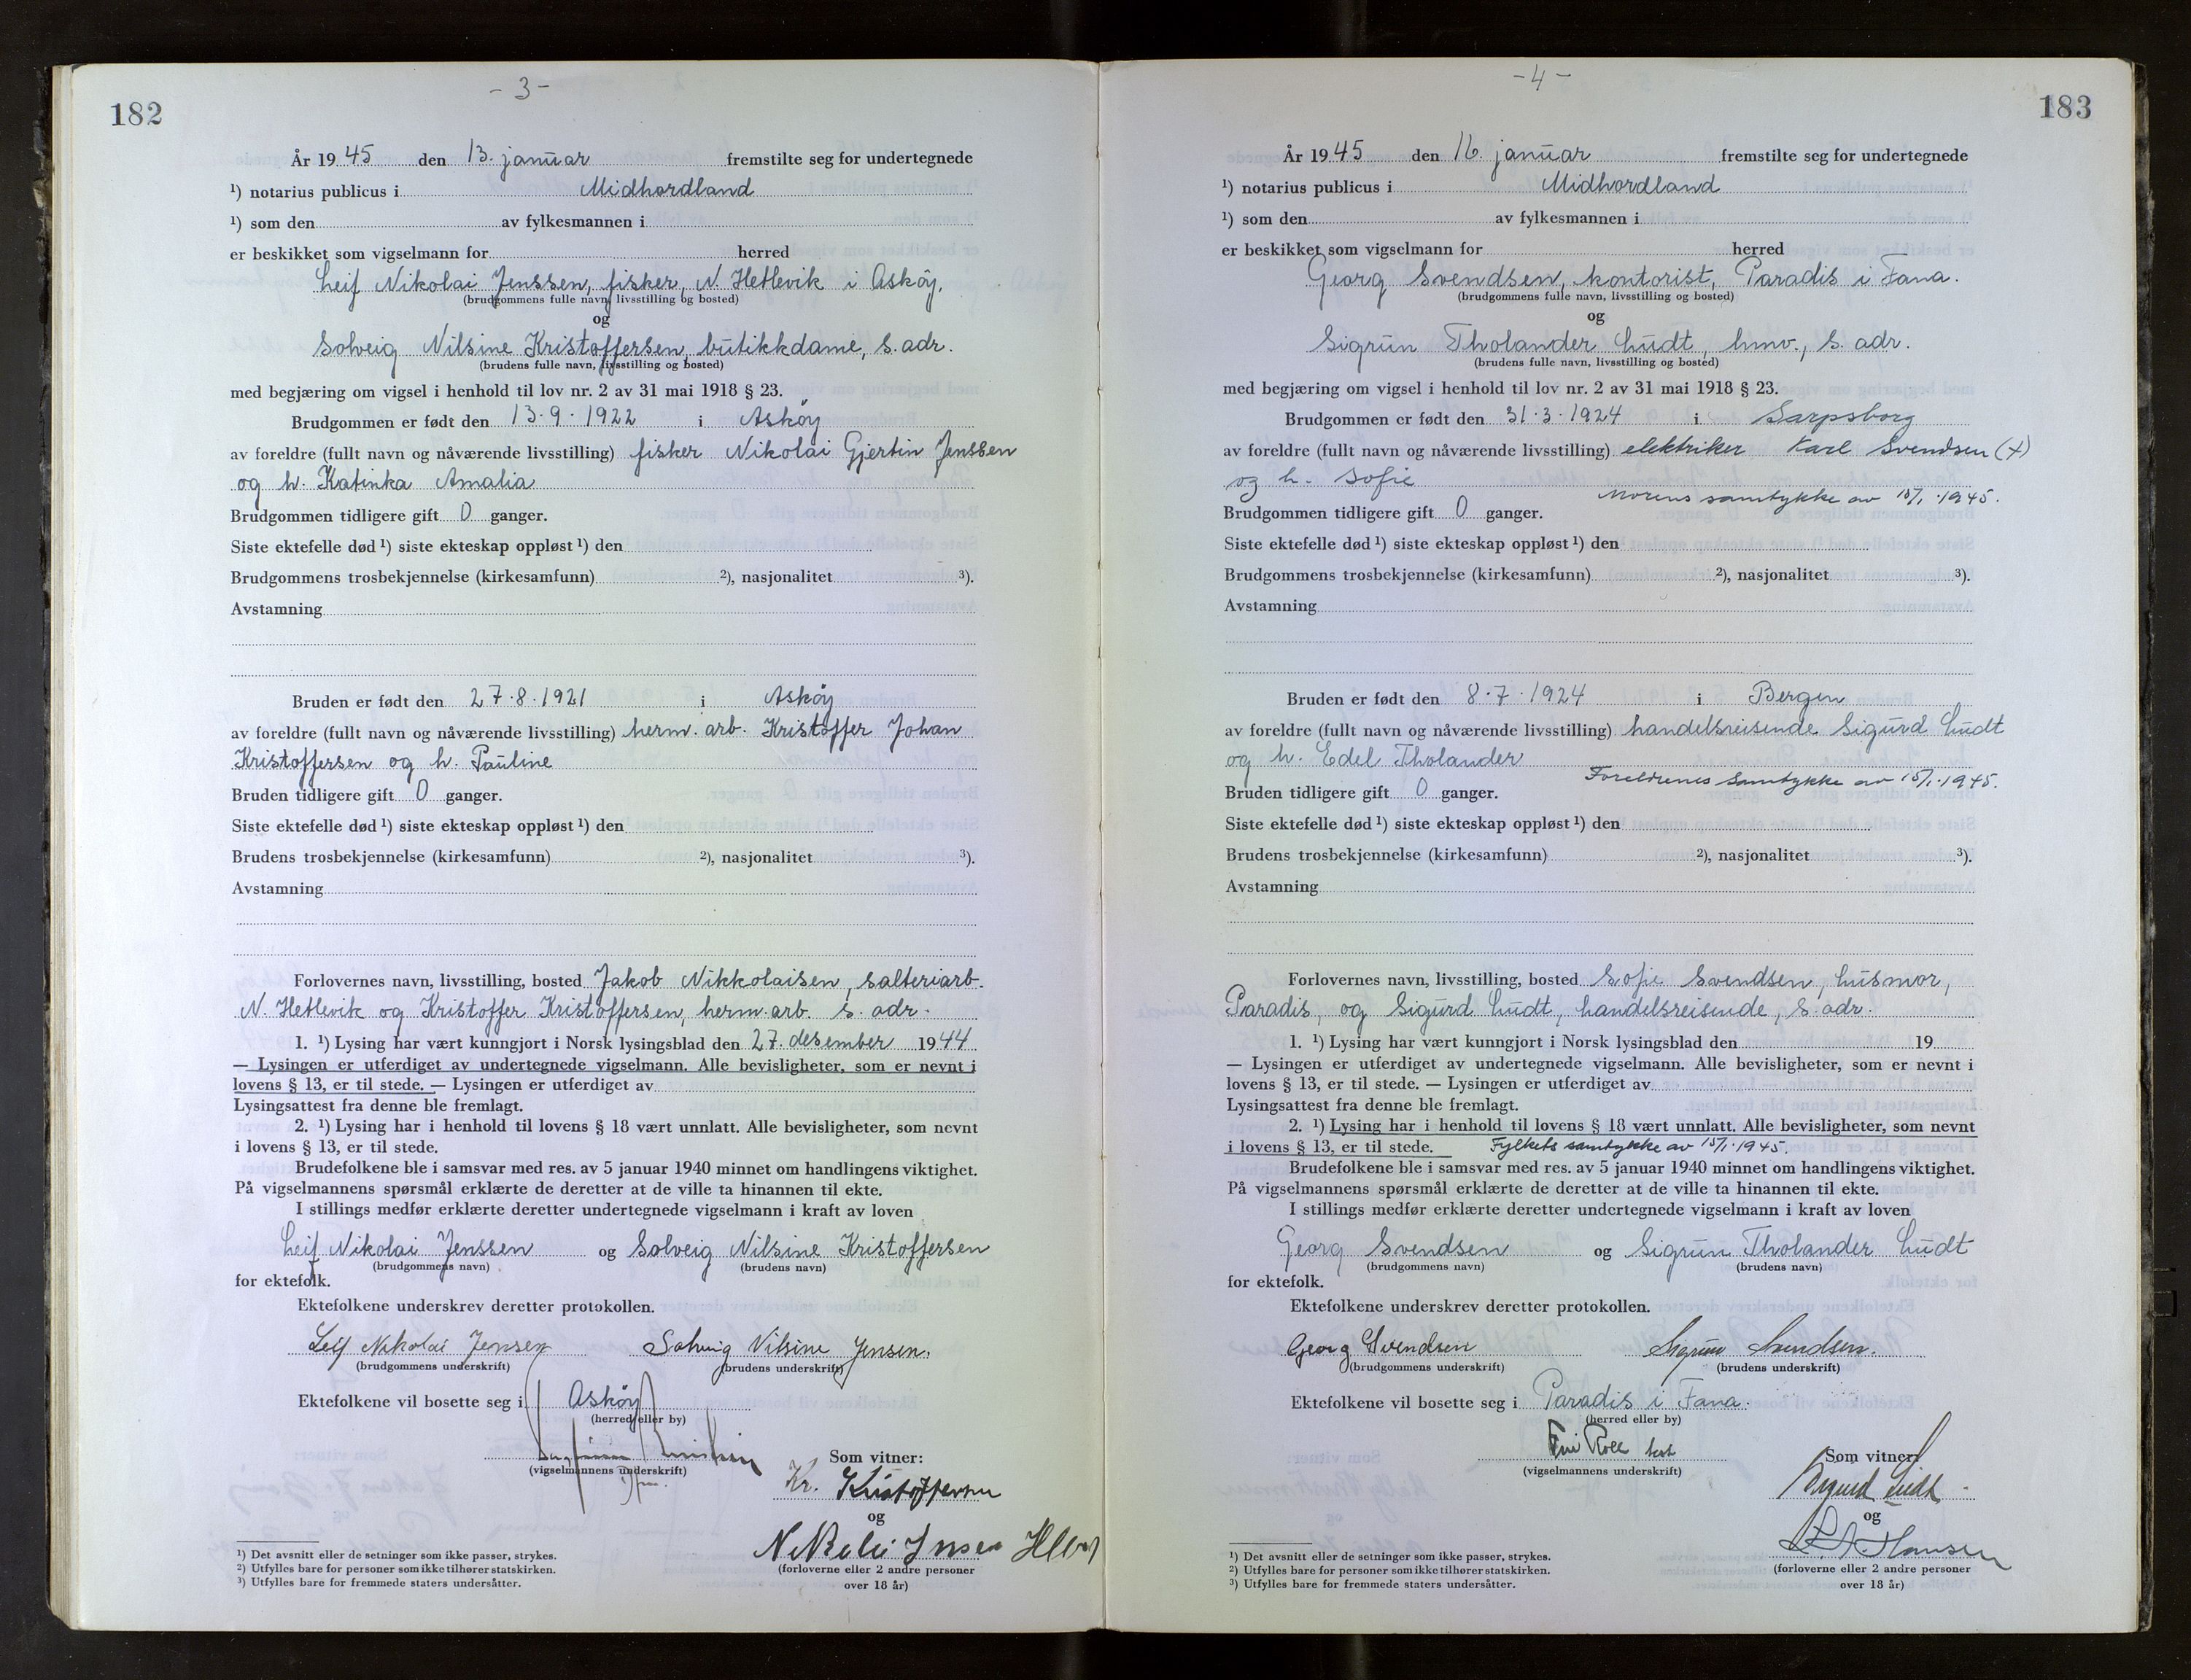 - 3 -
182
År 1945 den 13. januar fremstilte seg for undertegnede
¹) notarius publicus i Midhordland
¹) som den av fylkesmannen i
er beskikket som vigselmann for herred
Leif Nikolai Jenssen, fisker, N. Hetlevik i Askøy.
(brudgommens fulle navn, livsstilling og bosted)
og
Solveig Nilsine Kristoffersen, butikkdame, s. adr.
(brudens fulle navn, livsstilling og bosted)
med begjæring om vigsel i henhold til lov nr. 2 av 31 mai 1918 § 23.
Brudgommen er født den 13.9.1922 i Askøy
av foreldre (fullt navn og nåværende livsstilling) fisker Nikolai Gjertin Jenssen
og h. Katinka Amalia
Brudgommen tidligere gift 0 ganger.
Siste ektefelle død ¹) siste ekteskap oppløst ¹) den
Brudgommens trosbekjennelse (kirkesamfunn) ²), nasjonalitet ³).
Avstamning
Bruden er født den 27.8.1921 i Askøy
av foreldre (fullt navn og nåværende livsstilling) herm. arb. Kristoffer Johan
Kristoffersen og h. Pauline
Bruden tidligere gift 0 ganger.
Siste ektefelle død ¹) siste ekteskap oppløst ¹) den
Brudens trosbekjennelse (kirkesamfunn) ²), nasjonalitet ³).
Avstamning
Forlovernes navn, livsstilling, bosted Jakob Nikkolaisen, salteriarb.
N. Hetlevik og Kristoffer Kristoffersen, herm. arb. s. adr.
1. ¹) Lysing har vært kunngjort i Norsk lysingsblad den 27. desember 1944
— Lysingen er utferdiget av undertegnede vigselmann. Alle bevisligheter, som er nevnt i
lovens § 13, er til stede. — Lysingen er utferdiget av
Lysingsattest fra denne ble fremlagt.
2. ¹) Lysing har i henhold til lovens § 18 vært unnlatt. Alle bevisligheter, som nevnt
i lovens § 13, er til stede.
Brudefolkene ble i samsvar med res. av 5 januar 1940 minnet om handlingens viktighet.
På vigselmannens spørsmål erklærte de deretter at de ville ta hinannen til ekte.
I stillings medfør erklærte deretter undertegnede vigselmann i kraft av loven
Leif Nikolai Jenssen og Solveig Nilsine Kristoffersen
(brudgommens navn) (brudens navn)
for ektefolk.
Ektefolkene underskrev deretter protokollen.
Leif Nikolai Jensen Solveig Nilsine Jensen.
(brudgommens underskrift) (brudens underskrift)
Ektefolkene vil bosette seg i Askøy
(herred eller by)
Som vitner:
(vigselmannens underskrift)
Kr. Kristoffersen
og
(forloverne eller 2 andre personer
over 18 år)
¹) Det avsnitt eller de setninger som ikke passer, strykes.
²) Utfylles bare for personer som ikke tilhører statskirken.
³) Utfylles bare for fremmede staters undersåtter.
- 4 -
183
År 1945 den 16. januar fremstilte seg for undertegnede
¹) notarius publicus i Midhordland
¹) som den av fylkesmannen i
er beskikket som vigselmann for herred
Georg Svendsen, kontorist, Paradis i Fana.
(brudgommens fulle navn, livsstilling og bosted)
og
Sigrun Tholander Ludt, hmv., s. adr.
(brudens fulle navn, livsstilling og bosted)
med begjæring om vigsel i henhold til lov nr. 2 av 31 mai 1918 § 23.
Brudgommen er født den 31.3.1924 i Sarpsborg
av foreldre (fullt navn og nåværende livsstilling) elektriker Karl Svendsen (+)
og h. Sofie
Morens samtykke av 15/1.1945.
Brudgommen tidligere gift 0 ganger.
Siste ektefelle død ¹) siste ekteskap oppløst ¹) den
Brudgommens trosbekjennelse (kirkesamfunn) ²), nasjonalitet ³).
Avstamning
Bruden er født den 8.7.1924 i Bergen
av foreldre (fullt navn og nåværende livsstilling) handelsreisende Sigurd Ludt
og h. Edel Tholander
Foreldrenes samtykke av 15/1.1945.
Bruden tidligere gift 0 ganger.
Siste ektefelle død ¹) siste ekteskap oppløst ¹) den
Brudens trosbekjennelse (kirkesamfunn) ²), nasjonalitet ³).
Avstamning
Forlovernes navn, livsstilling, bosted Sofie Svendsen, husmor,
Paradis, og Sigurd Ludt, handelsreisende, s. adr.
1. ¹) Lysing har vært kunngjort i Norsk lysingsblad den 19
— Lysingen er utferdiget av undertegnede vigselmann. Alle bevisligheter, som er nevnt i
lovens § 13, er til stede. — Lysingen er utferdiget av
Lysingsattest fra denne ble fremlagt.
2. ¹) Lysing har i henhold til lovens § 18 vært unnlatt. Alle bevisligheter, som nevnt
i lovens § 13, er til stede. Fylkets samtykke av 15/1.1945.
Brudefolkene ble i samsvar med res. av 5 januar 1940 minnet om handlingens viktighet.
På vigselmannens spørsmål erklærte de deretter at de ville ta hinannen til ekte.
I stillings medfør erklærte deretter undertegnede vigselmann i kraft av loven
Georg Svendsen og Sigrun Tholander Ludt
(brudgommens navn) (brudens navn)
for ektefolk.
Ektefolkene underskrev deretter protokollen.
Georg Svendsen Sigrun Svendsen.
(brudgommens underskrift) (brudens underskrift)
Ektefolkene vil bosette seg i Paradis i Fana.
(herred eller by)
Som vitner:
(vigselmannens underskrift)
Sigurd Ludt
og
Hansen
(forloverne eller 2 andre personer
over 18 år)
¹) Det avsnitt eller de setninger som ikke passer, strykes.
²) Utfylles bare for personer som ikke tilhører statskirken.
³) Utfylles bare for fremmede staters undersåtter.